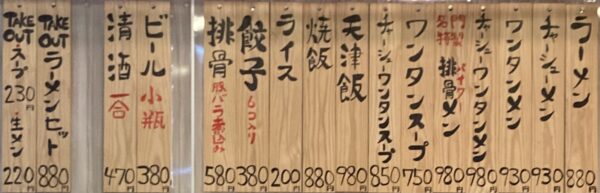 ラーメン
850円
チャーシューメン
930円
ワンタンメン
930円
チャーシューワンタンメン
980円
名門特製
排骨メン
パイク
980円
ワンタンスープ
750円
チャーシューワンタンスープ
850円
天津飯
980円
焼飯
880円
ライス
200円
餃子
6コ入り
380円
排骨
豚バラ煮込み
580円
ビール
小瓶
380円
清酒
一合
470円
TAKE OUT
ラーメンセット
880円
TAKE OUT
スープ
230円
生メン
220円